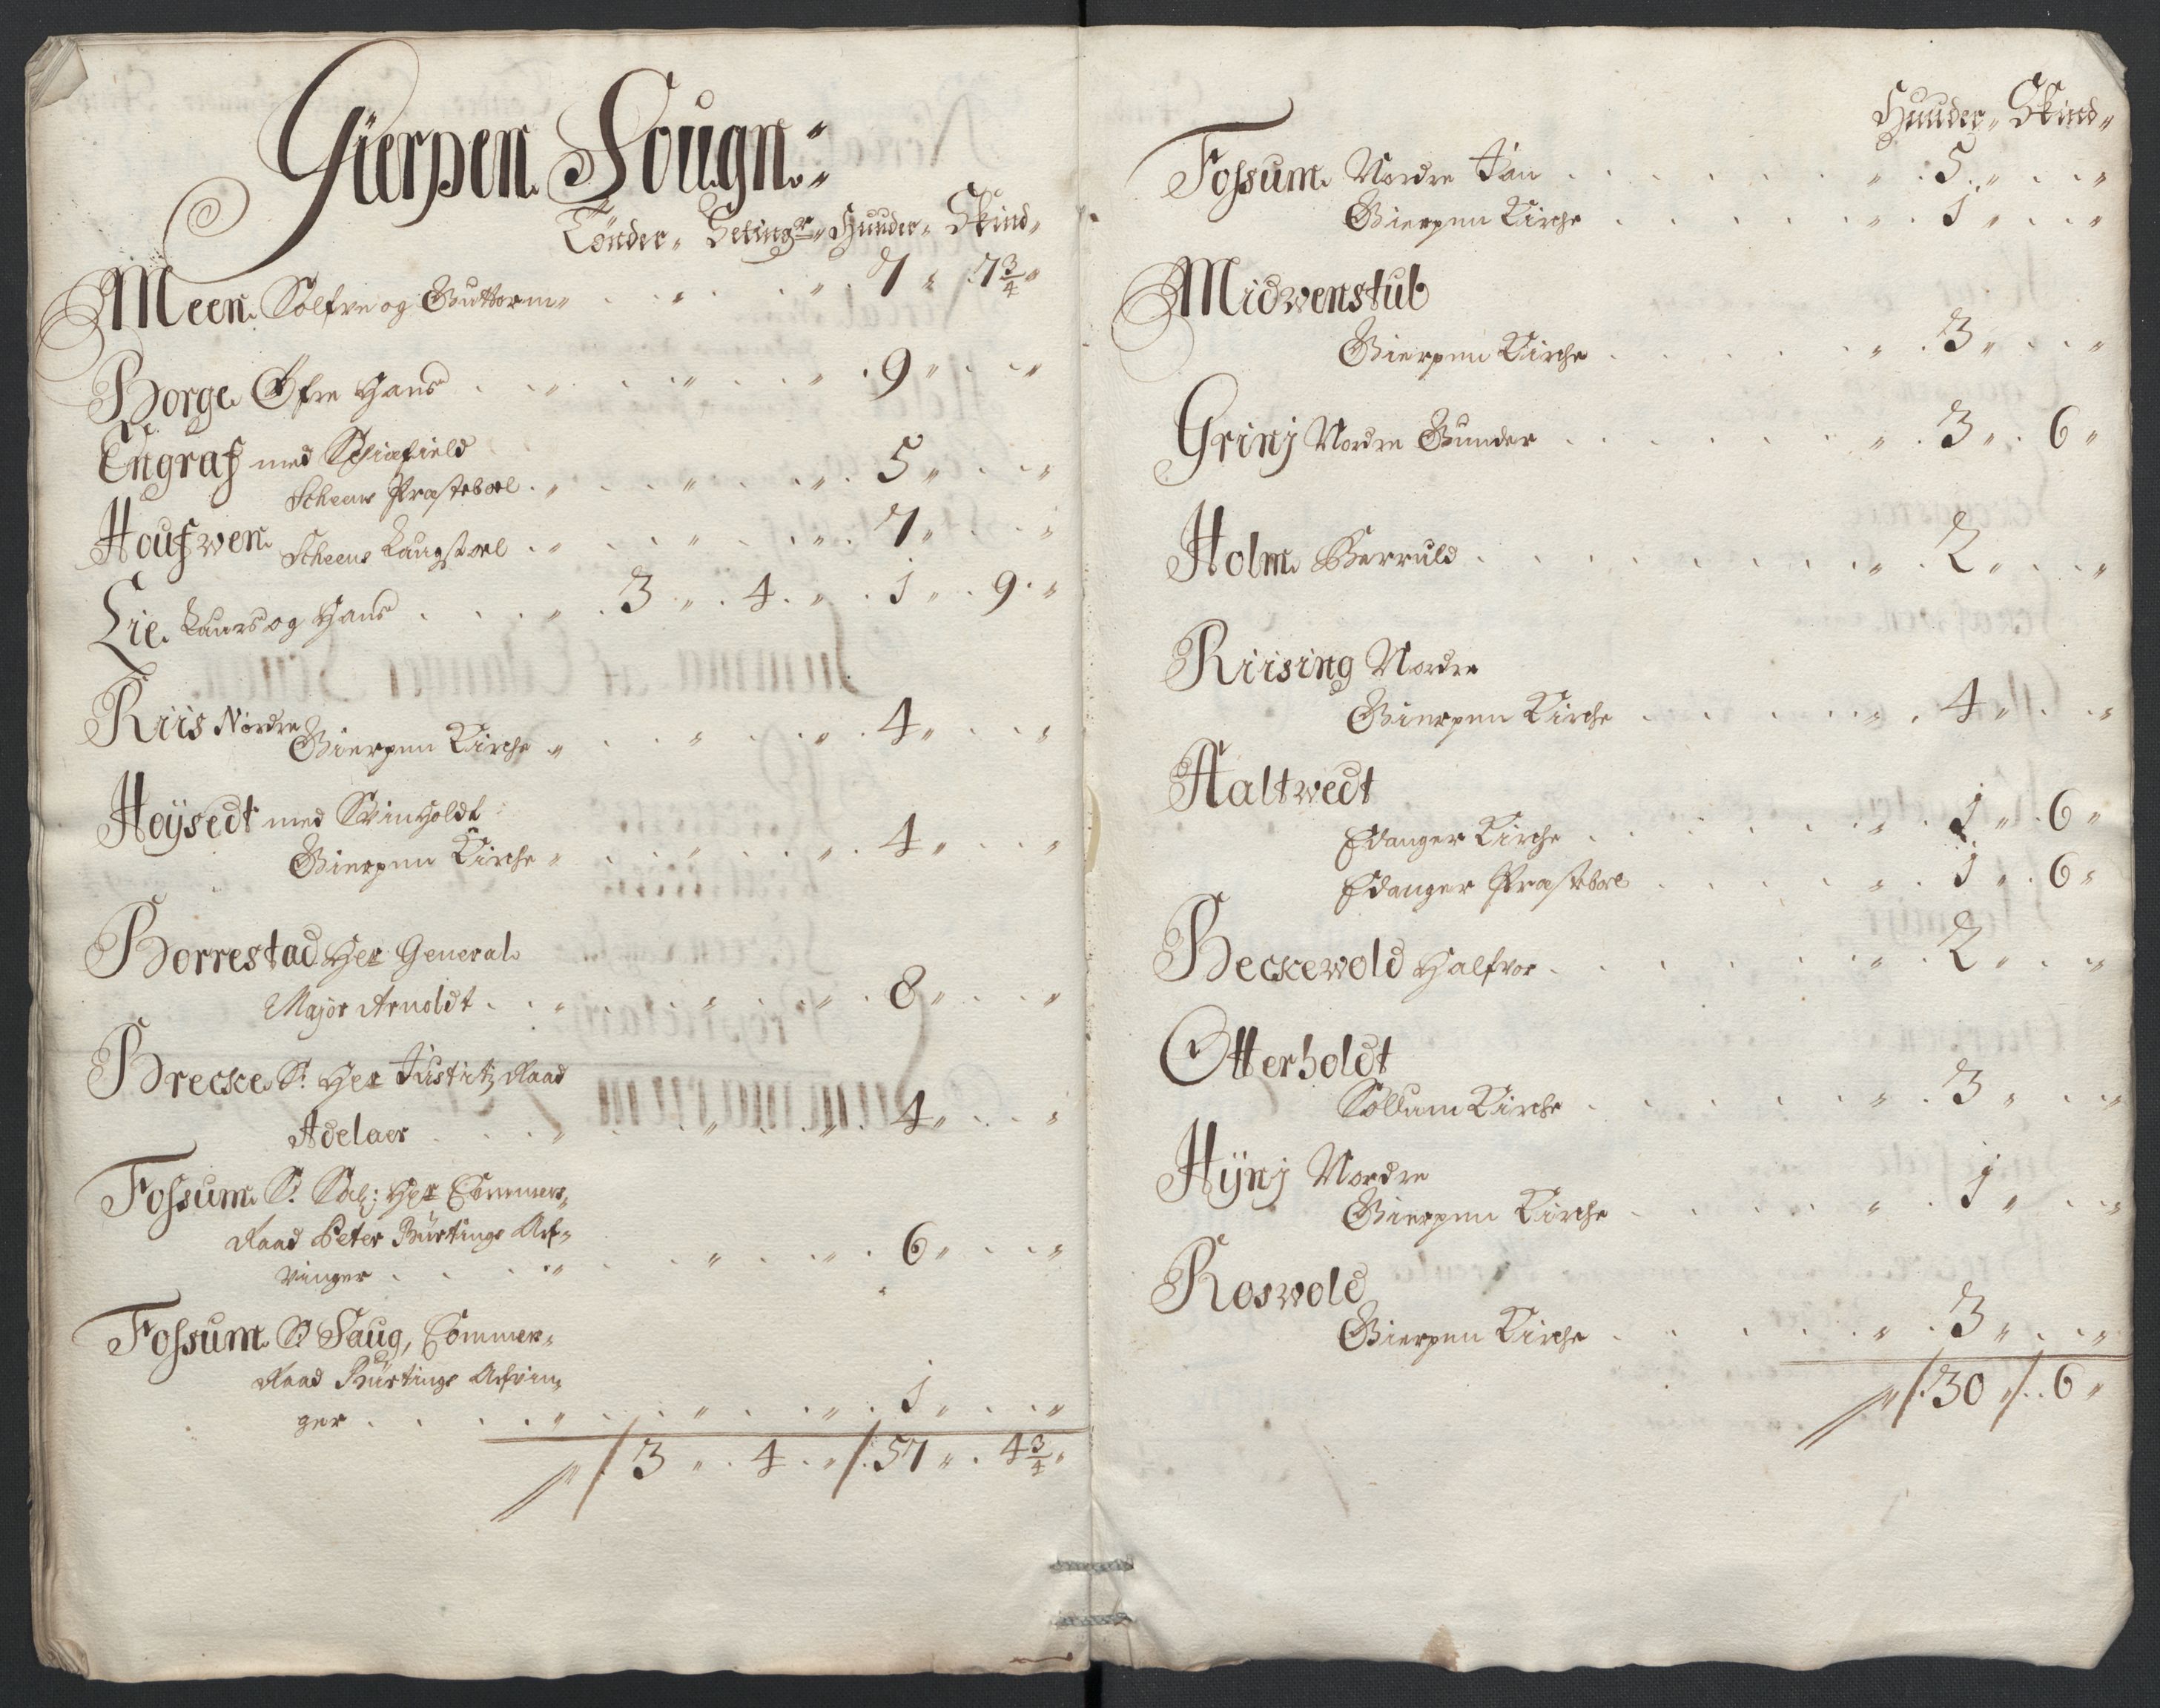 Gierpen Sougn:
Tønder, Setingr, Huuder, Skind,
Meen Solfve og Guttorm 7 7 3/4
Borge Øfre Hans 9
Engraf med Schiefield
Scheens Præsteboel 5
Houfwen Scheens Laugstoel 7
Lie Laurs og Hans 3 4 1 9
Riis Nordre
Gierpen Kirche 4
Høysedt med Svinholdt
Gierpen Kirche 4
Borrestad Her General
Major Arnoldt 8
Brecke S: Her Justitz Raad
Adelaer 4
Fossum S: Sal: Her Commers,
Raad Peter Bürtings Arf,
vinger 6
Fossum S: Saug, Commer,
Raad Bürtings Arfvin,
ger 1
3 4 57 4 3/4
Huuder, Skind,
Fossum Nordre Jan 5
Gierpen Kirche 1
Midwenstub
Gierpen Kirche 3
Grinj Nordre Gunder 3 6
Holm Berruld 2
Riising Nordre
Gierpen Kirche 4
Haltwedt
Edanger Kirche 1 6
Edanger Præsteboel 1 6
Beckewold Halfvor 2
Otterholdt
Sollum Kirche 3
Hÿnj Nordre
Gierpen Kirche 1
Roswold
Gierpen Kirche 3
30 6